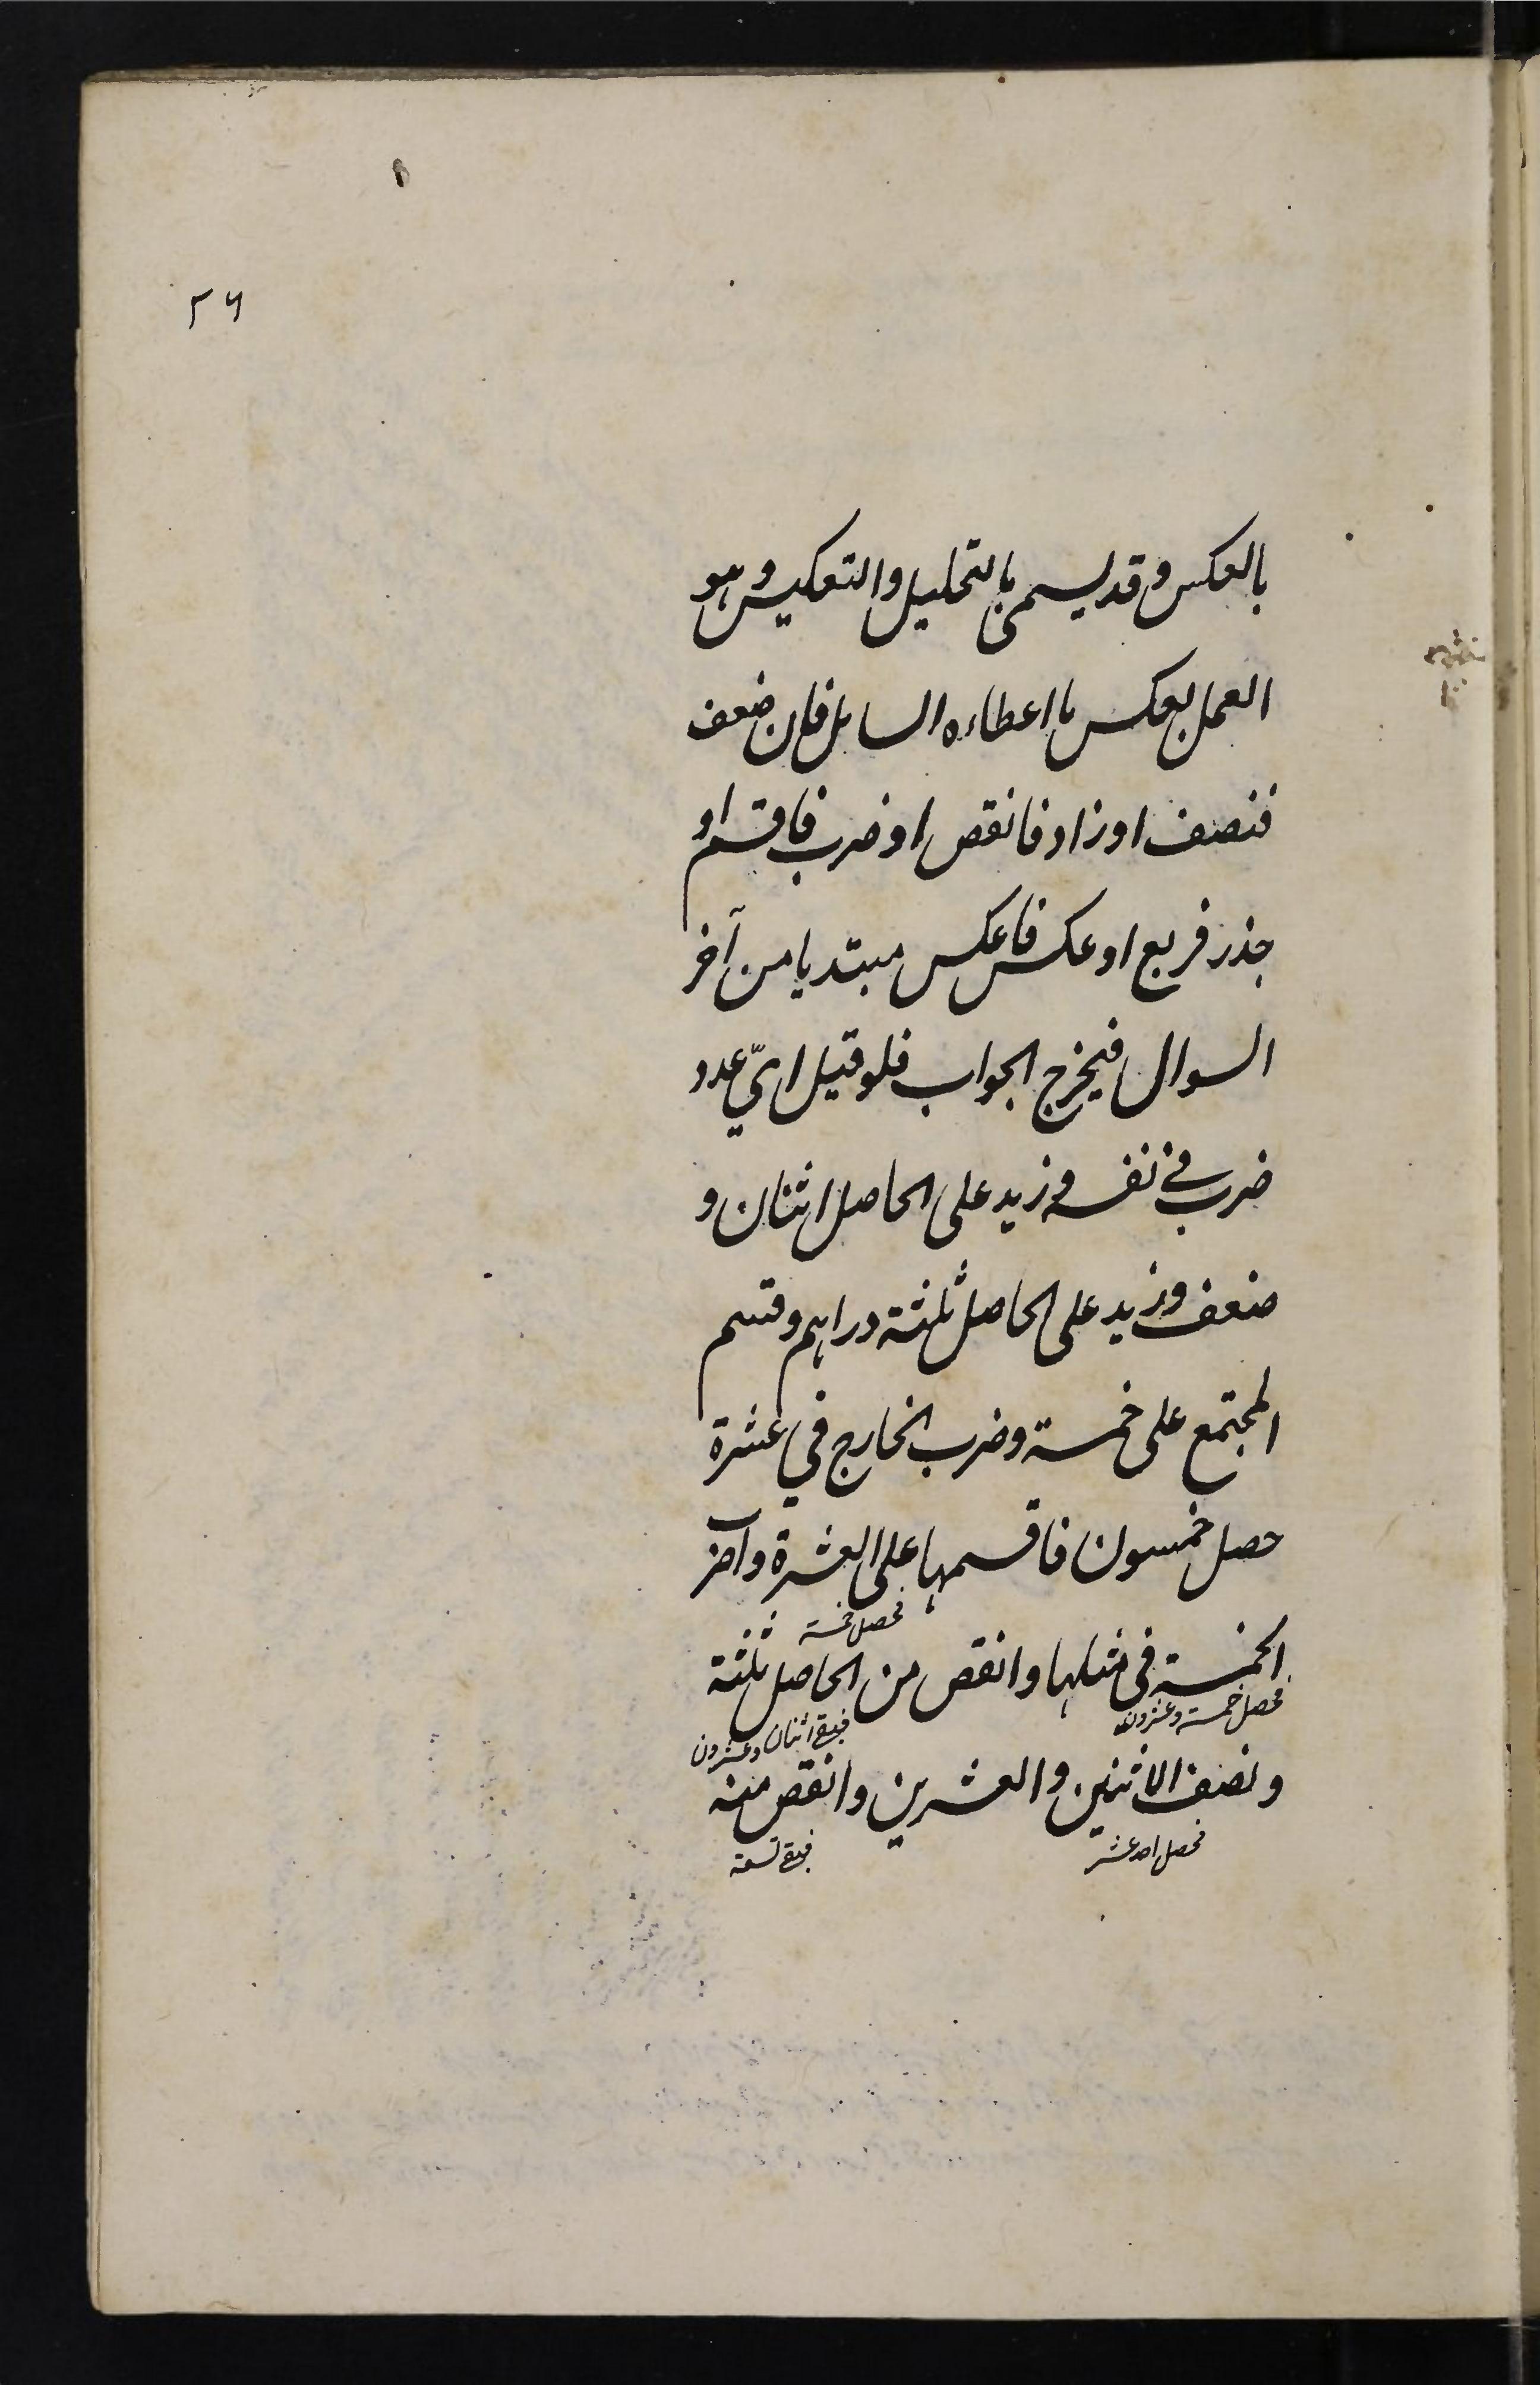 ٢٦
بالعكس وقد يسمى بالتحليل والتعكيس وهو
العمل بعكس ما اعطاه السايل فان ضعف
فنصف او زاد فانقص او ضرب فاقسم او
جذر فربع او عكس فاعكس مبتديا من آخر
السوال فيخرج الجواب فلو قيل ايّ عدد
ضرب في نفسه وزيد على الحاصل اثنان و
ضعف وزيد على الحاصل ثلثة دراهم وقسم
المجتمع على خمسة وضرب الخارج في عشرة
حصل خمسون فاقسمها على العشرة واضرب
فحصل خمسة
الخمسة في مثلها وانقص من الحاصل ثلثة
فحصل خمسة وعشرون
فبقي اثنان وعشرون
ونصف الاثنين والعشرين وانقص منه
فحصل احد عشر
فبقي تسعة